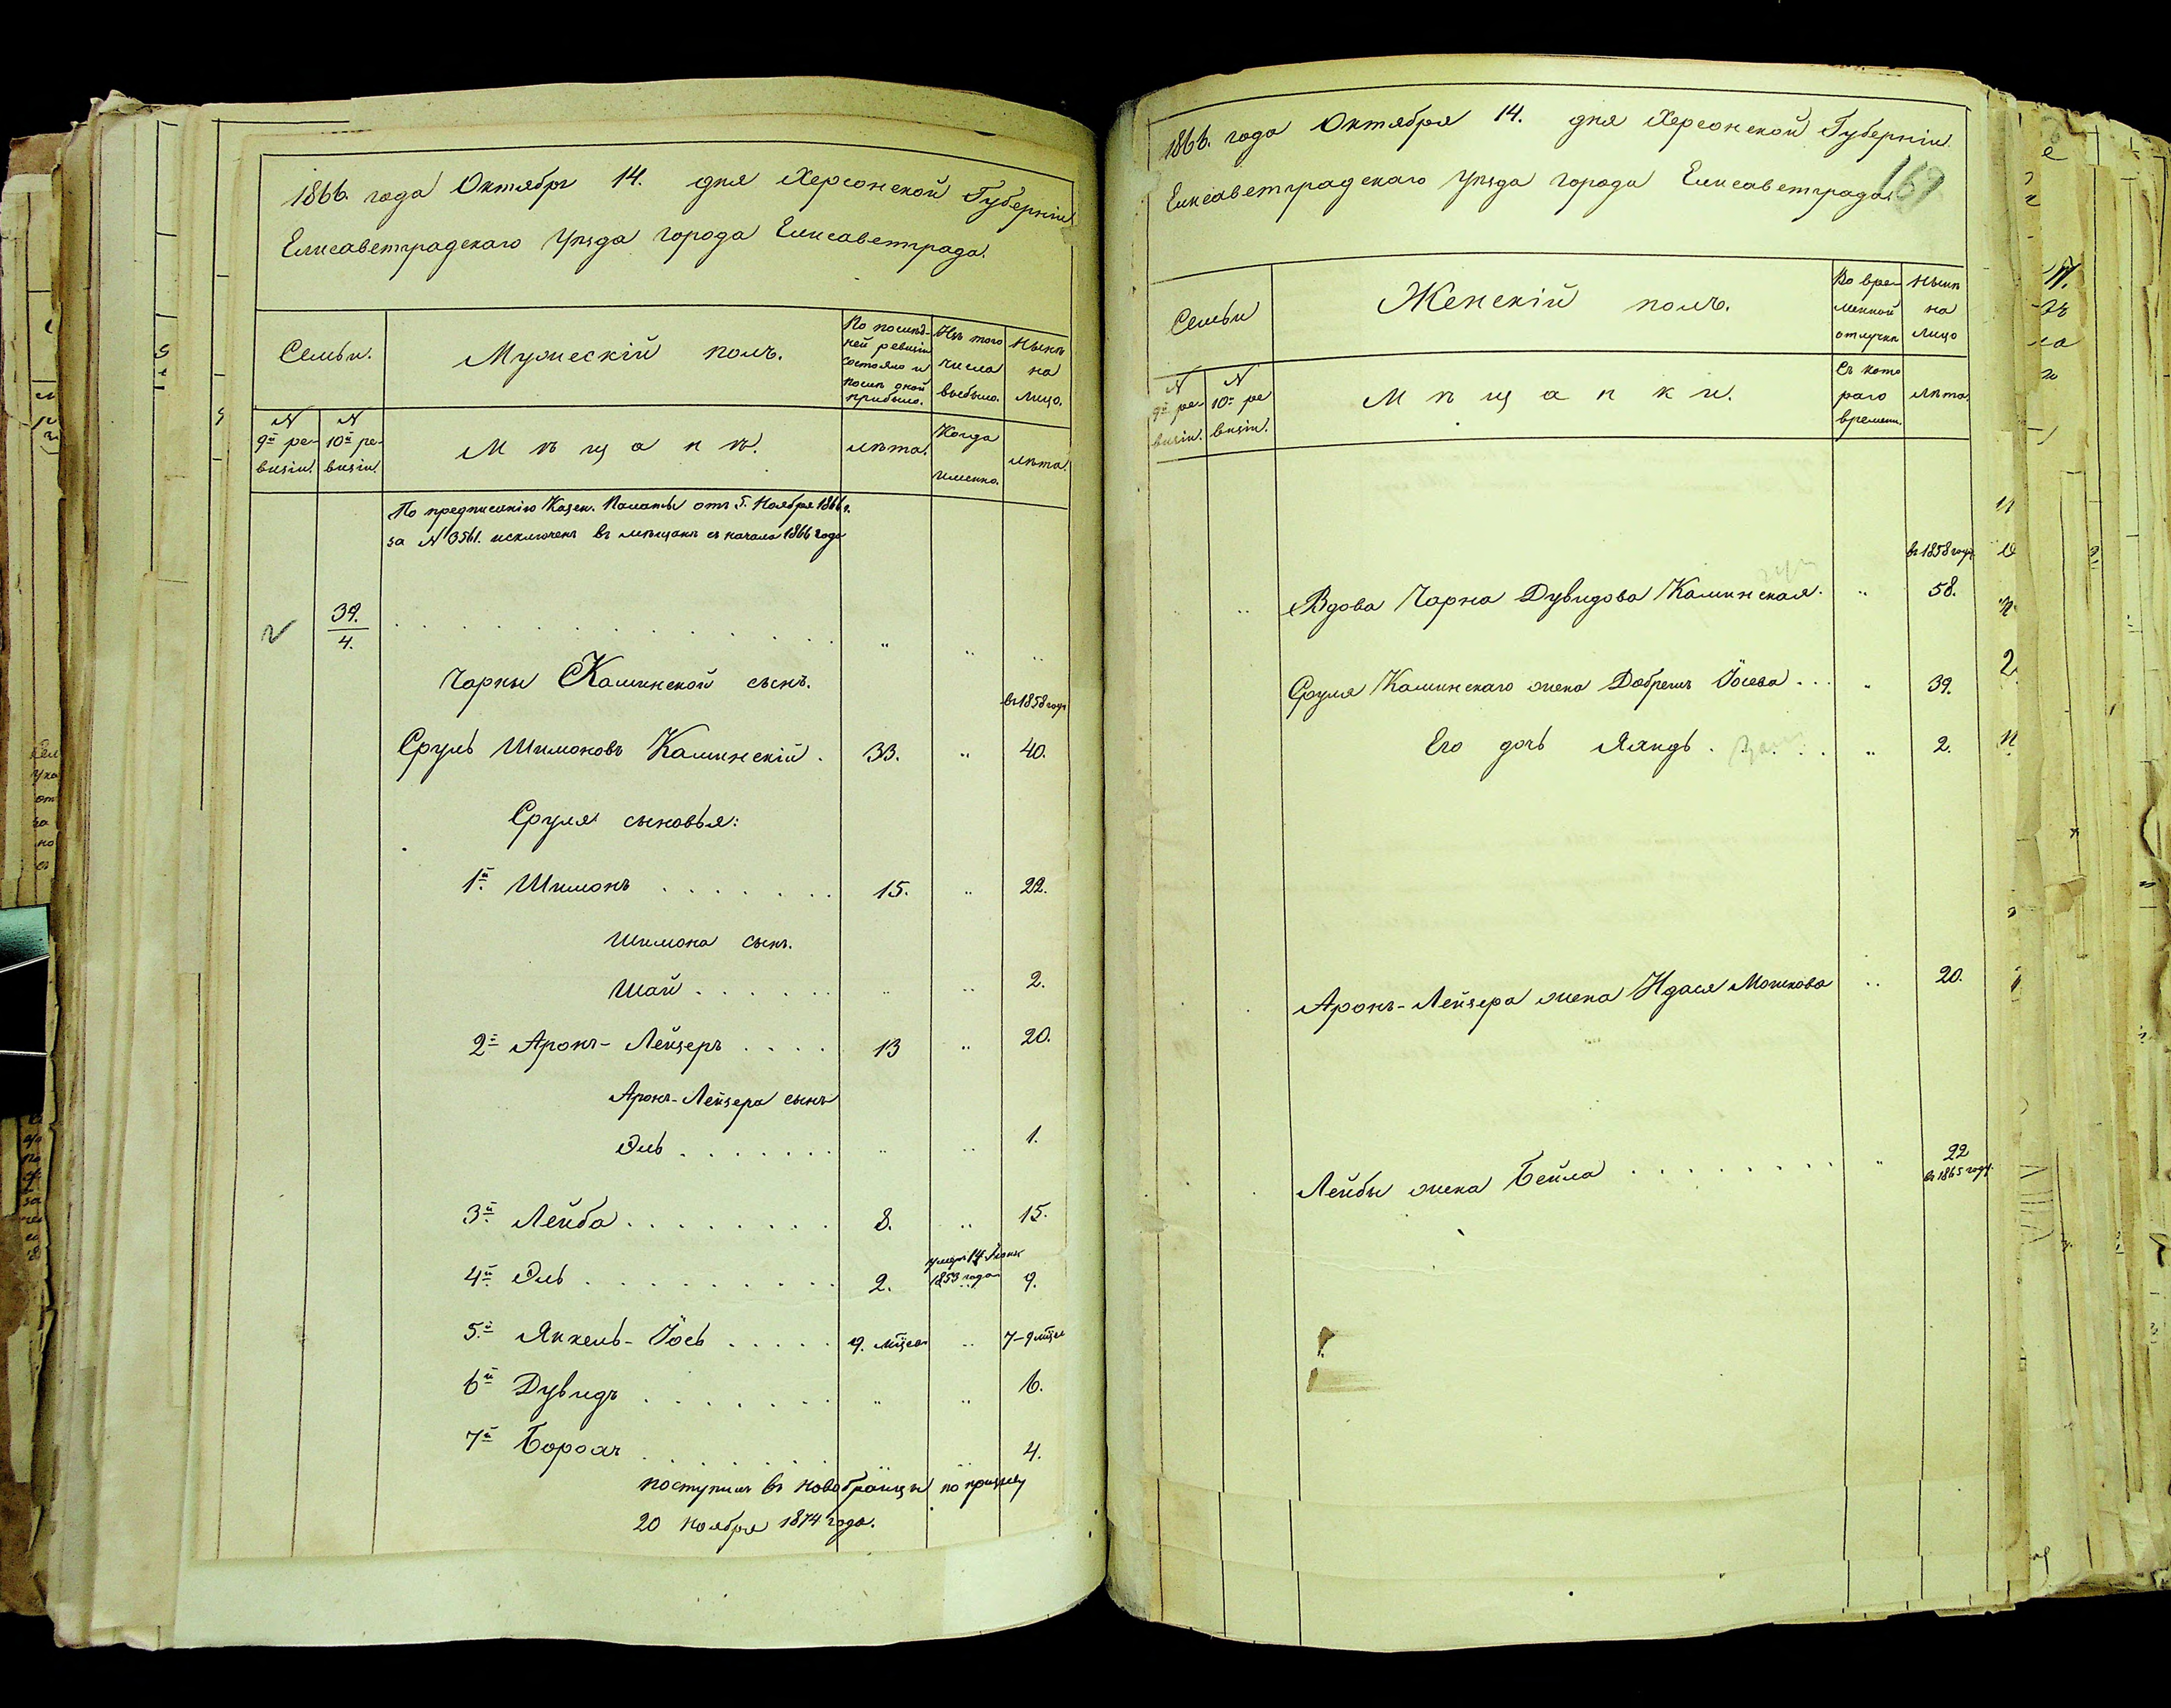 1866. года Октября 14. дня Херсонской Губерніи
Елисаветградскаго Уѣзда города Елисаветграда.
Семьи.
Мужескій полъ.
По послѣд-
ней ревизіи
состояло и
послѣ оной
прибыло.
Изъ того
числа
выбыло.
Нынѣ
на
лицо.
N
9й ре-
визіи.
N
10й ре-
визіи.
Мѣщане.
лѣта.
Когда
именно.
лѣта.
По предписанію Казен. Палаты отъ 5. Ноября 1866 г.
за N 3561. исключенъ въ мѣщане съ начала 1866 года
39.
4.
Чарны Каминской сынъ.
въ 1858 году
Сруль Шимоновъ Каминскій. 33. 40.
Сруля сыновья:
1й. Шимонъ 15. 22.
Шимона сынъ.
Шай 2.
2й Аронъ-Лейзеръ 13 20.
Аронъ-Лейзера сынъ
Эль 1.
3й. Лейба 8. 15.
4й. Эль 2. умеръ 14 1853 года 9.
5й. Янкель-Іось 9. мѣсяц 7-9 мѣсяц
6й Дувидъ 6.
7й Борохъ 4.
поступилъ въ новобранцы по призыву
20 Ноября 1874 года.
1866. года Октября 14. дня Херсонской Губерніи
Елисаветградскаго Уѣзда города Елисаветграда.
169
Семьи
Женскій полъ.
Во вре-
менной
отлучкѣ
Нынѣ
на
лицо
N
9й ре-
визіи.
N
10й ре
визіи.
Мѣщанки.
Съ кото
раго
времени.
лѣта.
въ 1858 году
Вдова Чарна Дувидова Каминская. 58.
Сруля Каминскаго жена Добрешъ Іосева 39.
Его дочь Ляндъ 2.
Аронъ-Лейзера жена Идася Мошкова 20.
Лейбы жена Бейла 22
въ 1865 году.